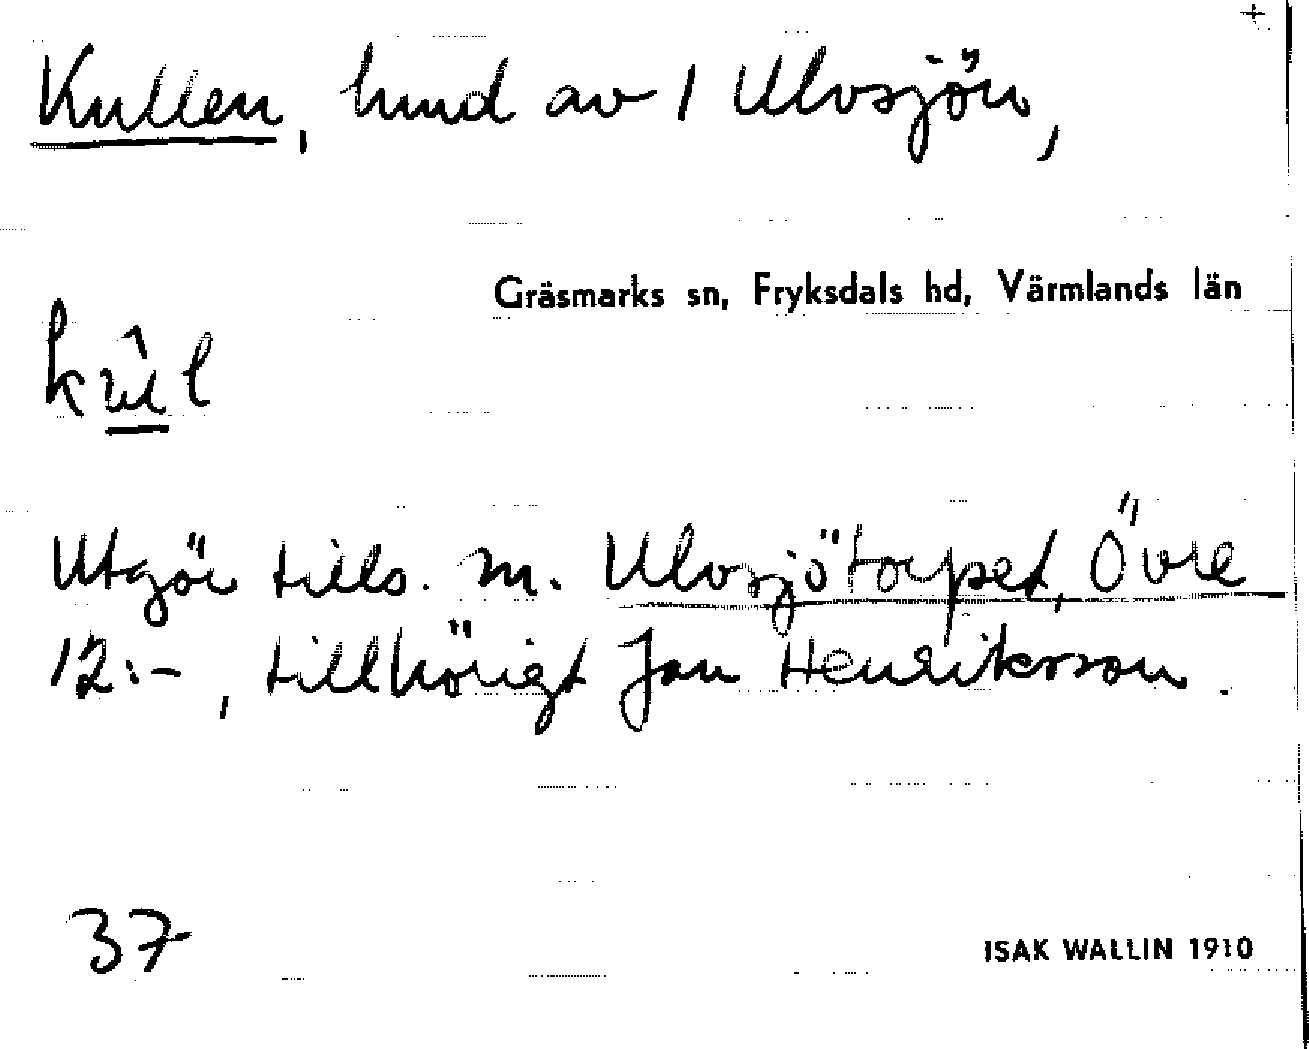 Kullen, hmd av 1 Ulvsjön,
Gräsmarks sn, Fryksdals hd, Värmlands län
Utgör tills. m. Ulvsjötorpet, Övre
12:-, tillhörigt Jan Henriksson.
37
ISAK WALLIN 1910